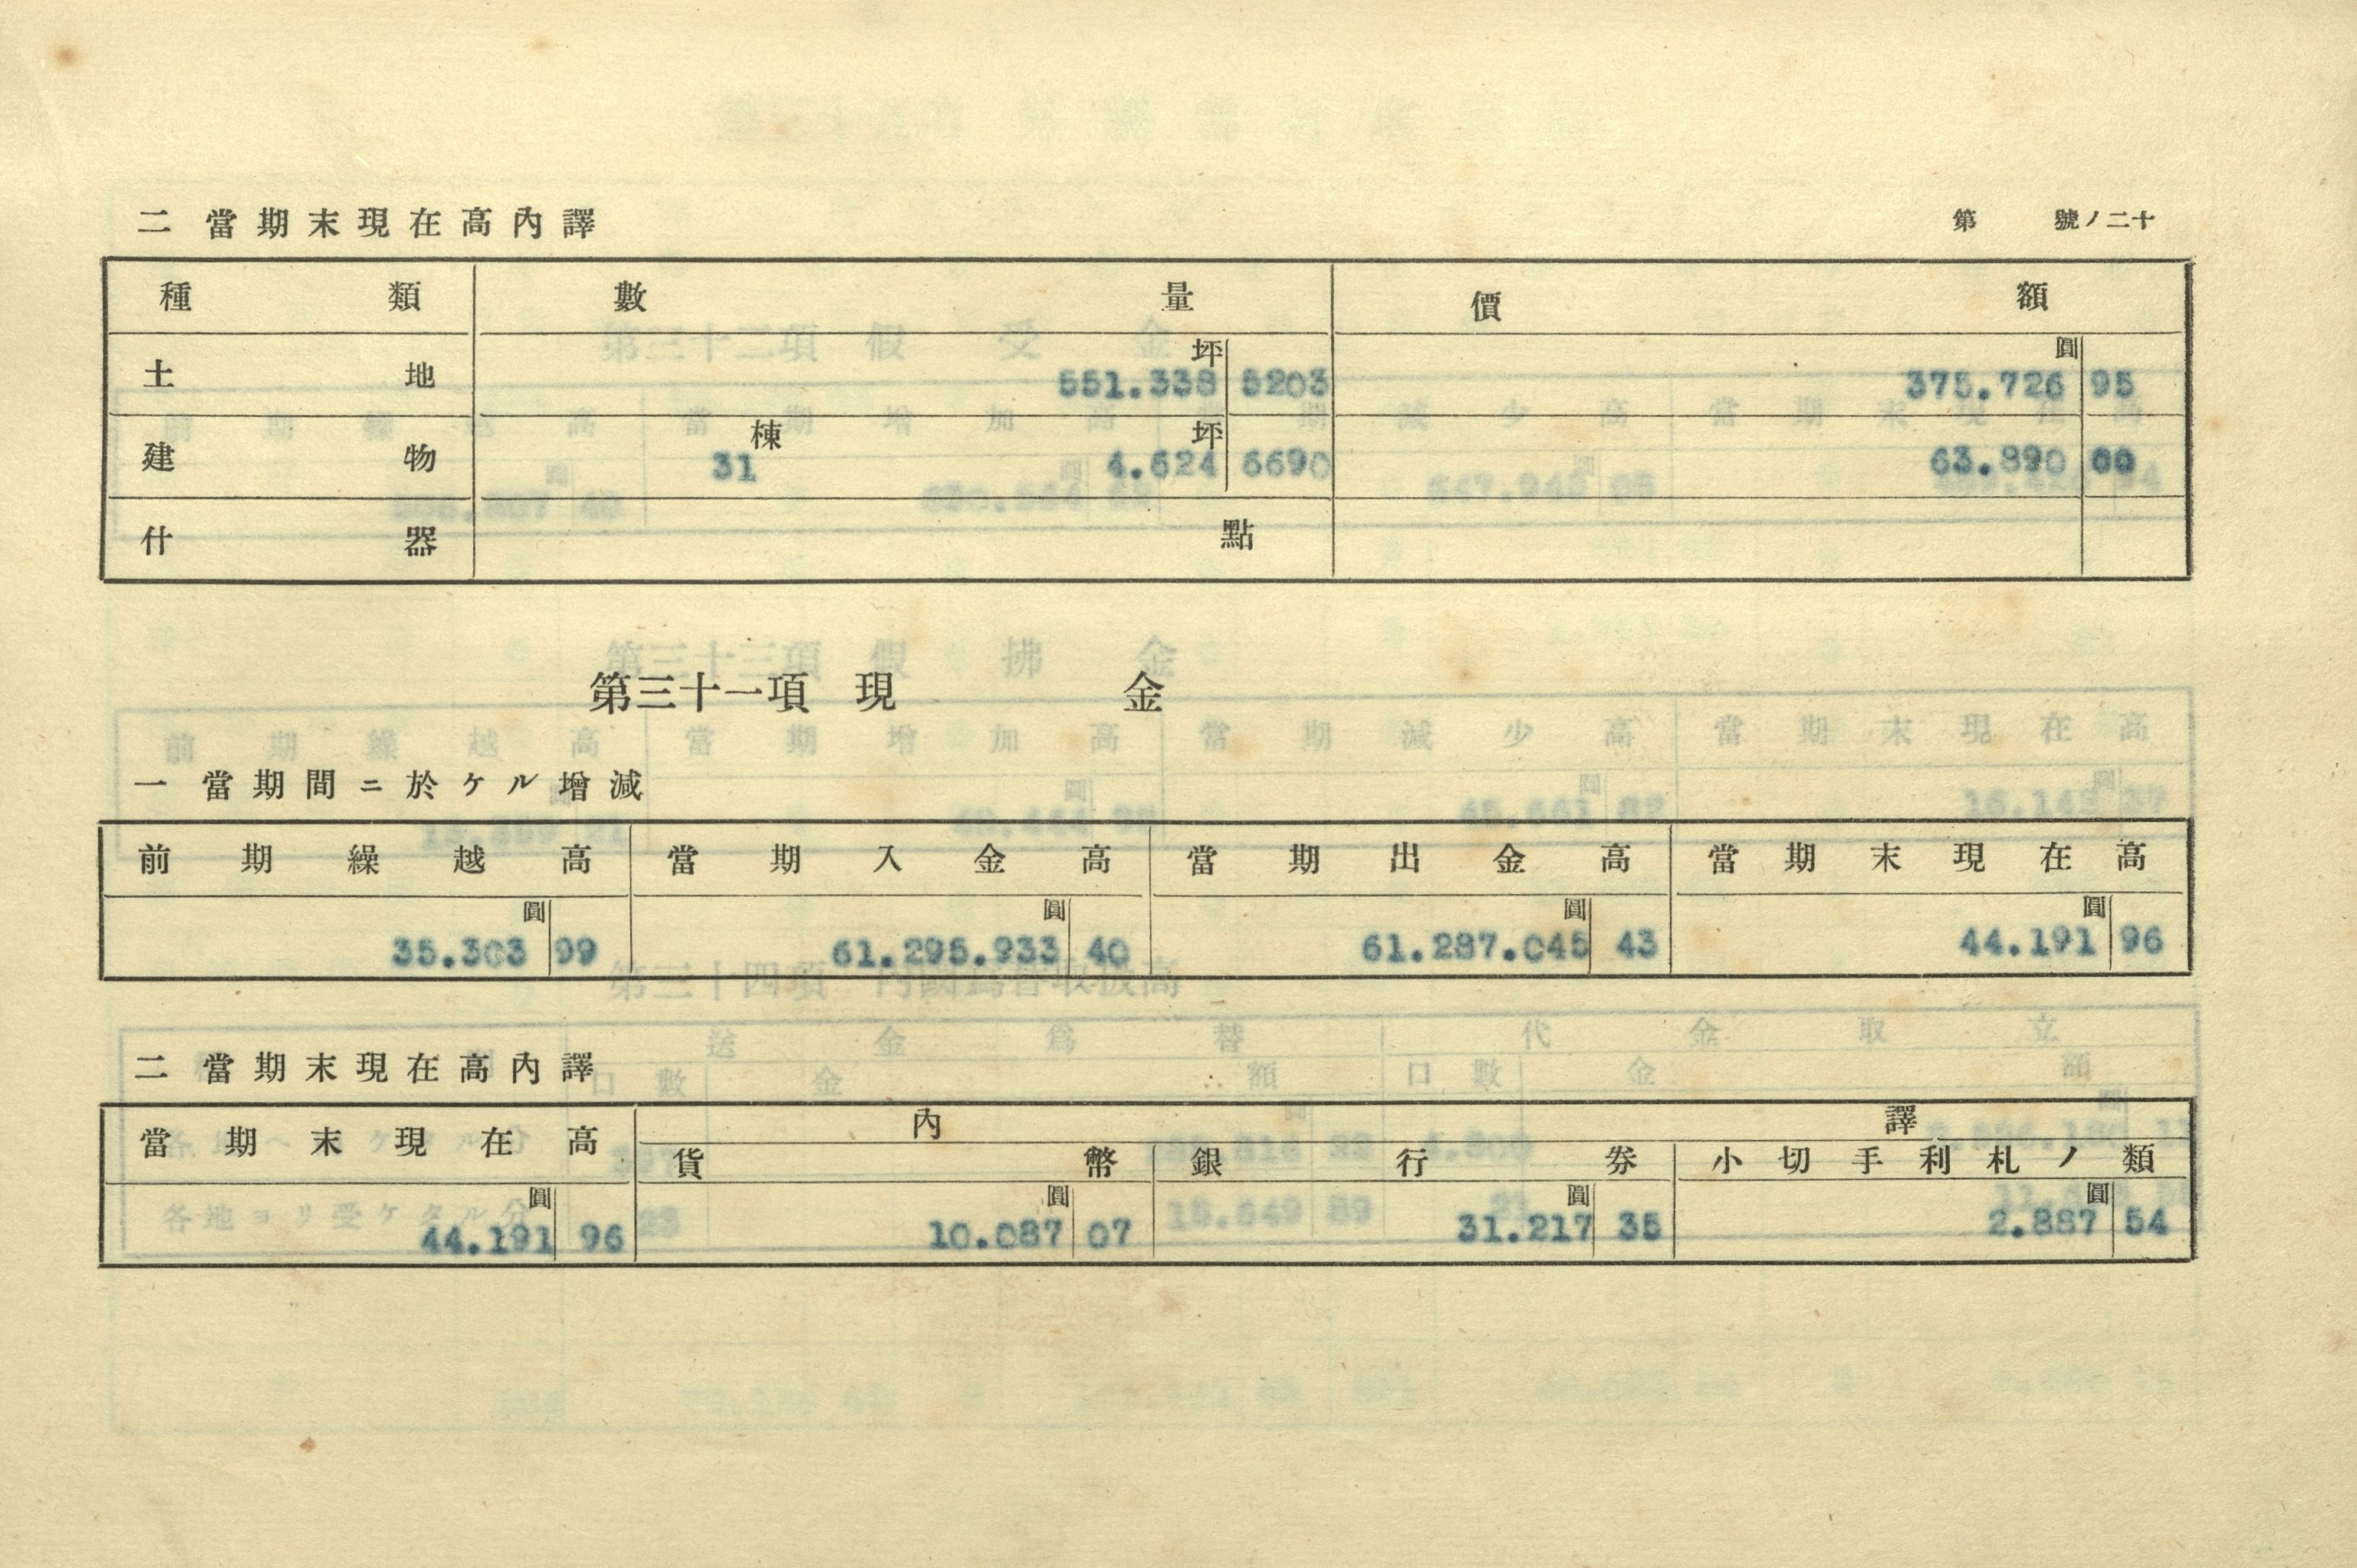 二 當期末現在高內譯
第 號ノ二十
種類 數量 價額
土地 坪 551.338 5203 圓 375.726 95
建物 棟 31 坪 4.624 6690 63.890
什器 點
第三十一項 現金
一 當期間ニ於ケル增減
前期繰越高 當期入金高 當期出金高 當期末現在高
圓 35.303 99 圓 61.295.933 40 圓 61.287.045 43 圓 44.191 96
二 當期末現在高內譯
當期末現在高 內譯
貨幣 銀行券 小切手利札ノ類
圓 44.191 96 圓 10.087 07 圓 31.217 35 圓 2.887 54